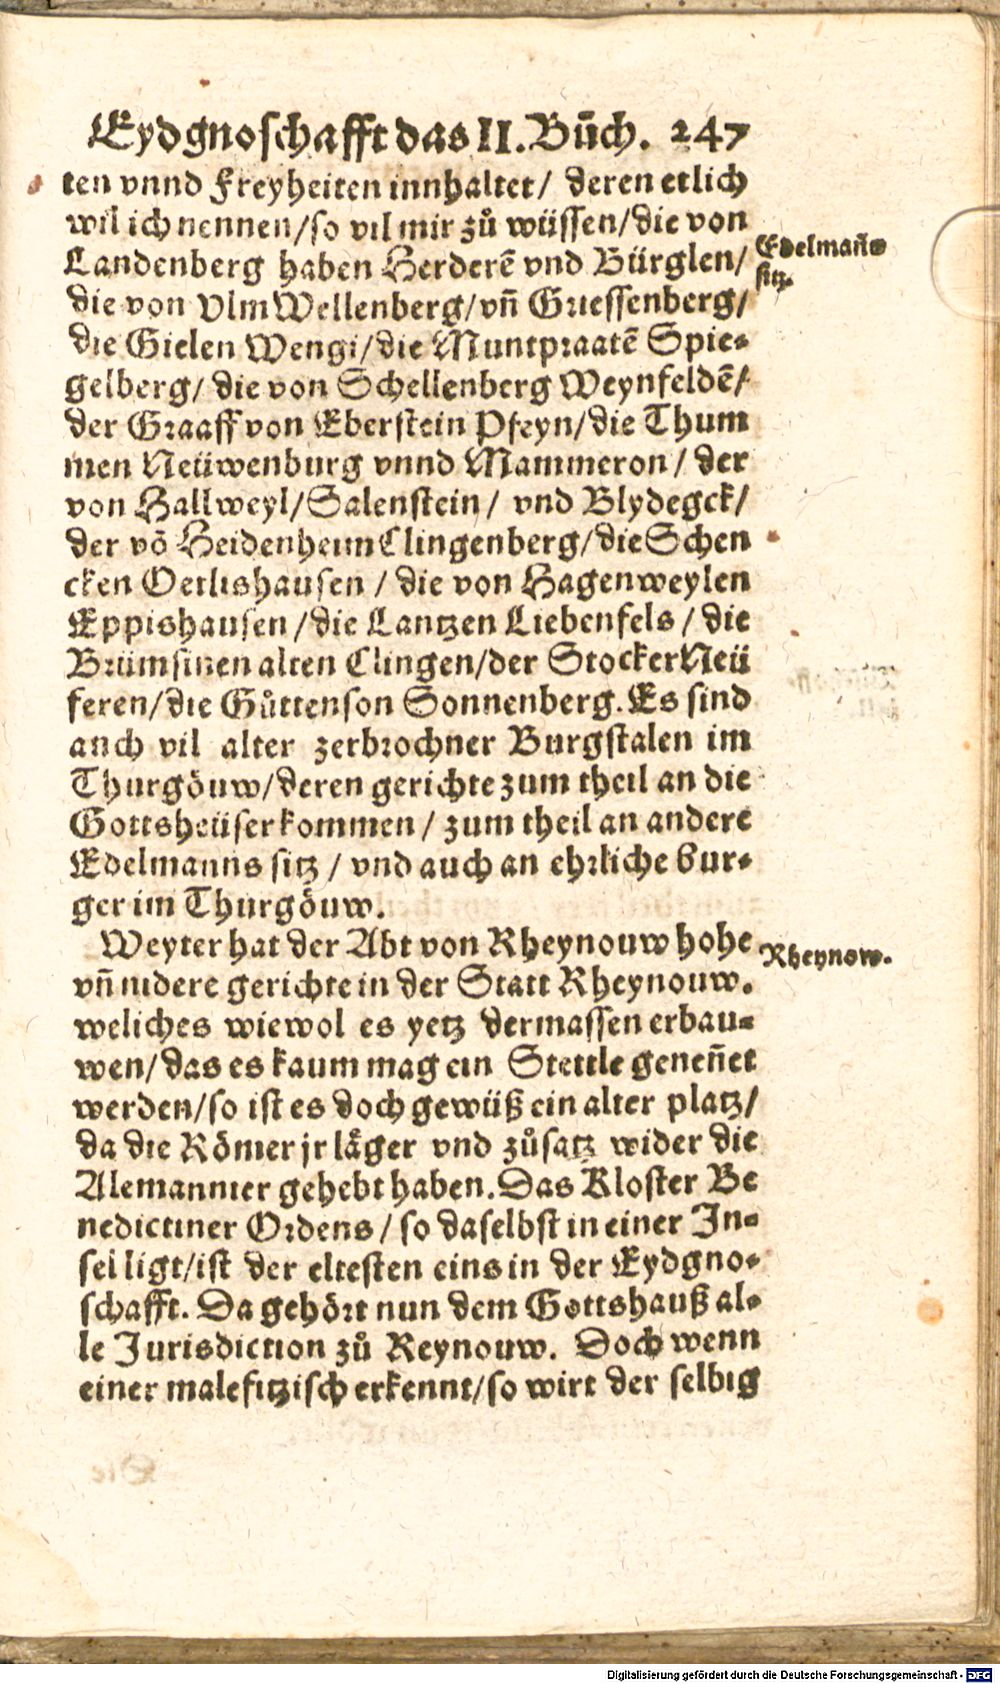 Eydgnoschafft das II. Bůch. 247
ten vnnd Freyheiten innhaltet/ deren etlich
wil ich nennen/so vil mir zů wüssen/die von
Landenberg haben Herderē vnd Bürglen/
Edelman̄s
sitz.
die von Vlm Wellenberg/vn̄ Griessenberg/
die Gielen Wengi/die Muntpraatē Spie-
gelberg/ die von Schellenberg Weynfeldē/
der Graaff von Eberstein Pfeyn/die Thum
men Neüwenburg vnnd Mammeron/ der
von Hallweyl/Salenstein/ vnd Blydegck/
der vō Heidenheim Clingenberg/die Schen
cken Oetlishausen / die von Hagenweylen
Eppishausen /die Lantzen Liebenfels/ die
Brümsinen alten Clingen/der Stocker Neü
feren/die Gůttenson Sonnenberg. Es sind
auch vil alter zerbrochner Burgstalen im
Thurgöuw/deren gerichte zum theil an die
Gottsheüser kommen / zum theil an andere
Edelmanns sitz / vnd auch an ehrliche bur-
ger im Thurgöuw.
Weyter hat der Abt von Rheynouw hohe
Rheynow.
vn̄ nidere gerichte in der Statt Rheynouw.
weliches wiewol es yetz dermassen erbau-
wen/das es kaum mag ein Stettle genen̄et
werden/so ist es doch gewüß ein alter platz/
da die Römer jr läger vnd zůsatz wider die
Alemannier gehebt haben. Das Kloster Be
nedictiner Ordens/ so daselbst in einer In-
sel ligt/ist der eltesten eins in der Eydgno-
schafft. Da gehört nun dem Gottshauß al-
le Jurisdiction zů Reynouw. Doch wenn
einer malefitzisch erkennt/so wirt der selbig
Digitalisierung gefördert durch die Deutsche Forschungsgemeinschaft - DFG